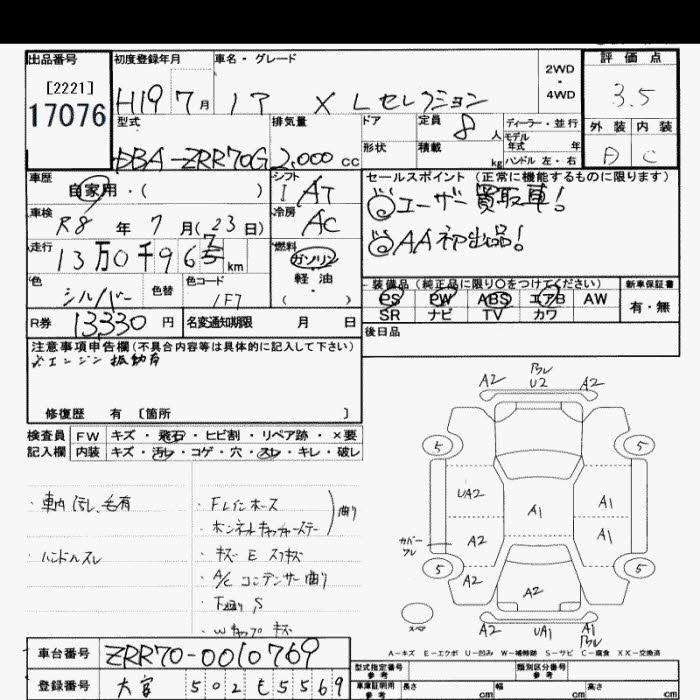 出品番号
[2221]
17076
初度登録年月
H19 7月
車名・グレード
ノア X Lセレクション
2WD
・
4WD
評価点
3.5
外装 内装
D C
型式
DBA-ZRR70G
排気量
2,000cc
ドア
形状
定員
8人
積載
kg
ディーラー・並行
モデル
年式 年
ハンドル 左・右
車歴
自家用・( )
シフト
I AT
車検
R8年7月(23日)
冷房
AC
走行
13万0千96 km
燃料
ガソリン
軽油
( )
色
シルバー
色替
色コード
1F7
R券 13330円
名変通知期限 月 日
セールスポイント(正常に機能するものに限ります)
ユーザー買取車!
AA初出品!
装備品(純正品に限り○をつけてください)
PS PW ABS エアB AW
SR ナビ TV カワ
新車保証書
有・無
後日品
注意事項申告欄(不具合内容等は具体的に記入して下さい)
※エンジン振動有
修復歴 有〔箇所 〕
検査員 FW キズ・飛石・ヒビ割・リペア跡・×要
記入欄 内装 キズ・汚レ・コゲ・穴・スレ・キレ・破レ
・車内汚レ、毛有
・ハンドルスレ
・Fレインホース
・ボンネットキャッチャーステー
曲り
・キズ E スリキズ
・A/Cコンデンサー曲り
・下廻りS
・Wキャップキズ
A2 U2 A2
5 5
UA2 A1 A1
カバー
ズレ
A2 A1
5 5
A2 A2
スペア
A2 UA1 A1
A-キズ E-エクボ U-凹み W-補修跡 S-サビ C-腐食 XX-交換済
車台番号 ZRR70-0010769
登録番号 大宮 502 も 5569
型式指定番号
参考
類別区分番号
参考
車庫証明用
参考
長さ cm 幅 cm 高さ cm